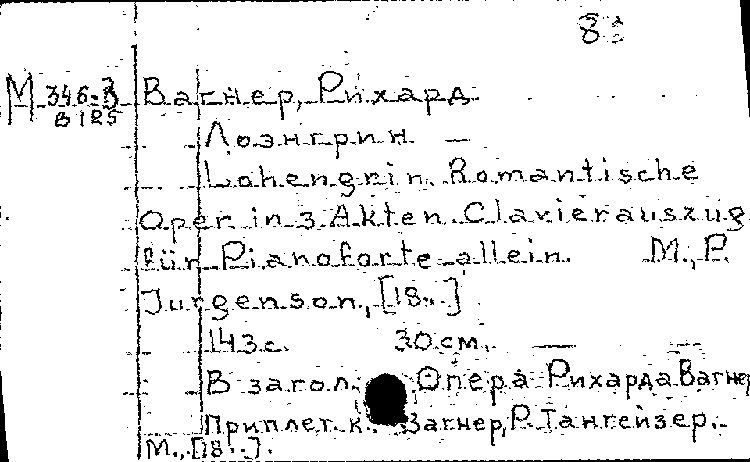 8
М 346-3 Вагнер, Рихард
В 125
Лоэнгрин. —
Lohengrin. Romantische
Oper in 3 Akten. Clavierauszug
für Pianoforte allein. М., P.
Jurgenson, [18..]
143 с. 30 см. —
В загол.: Опера Рихарда Вагнер
Приплет. к: Вагнер, Р. Тангейзер.-
М., [18..].